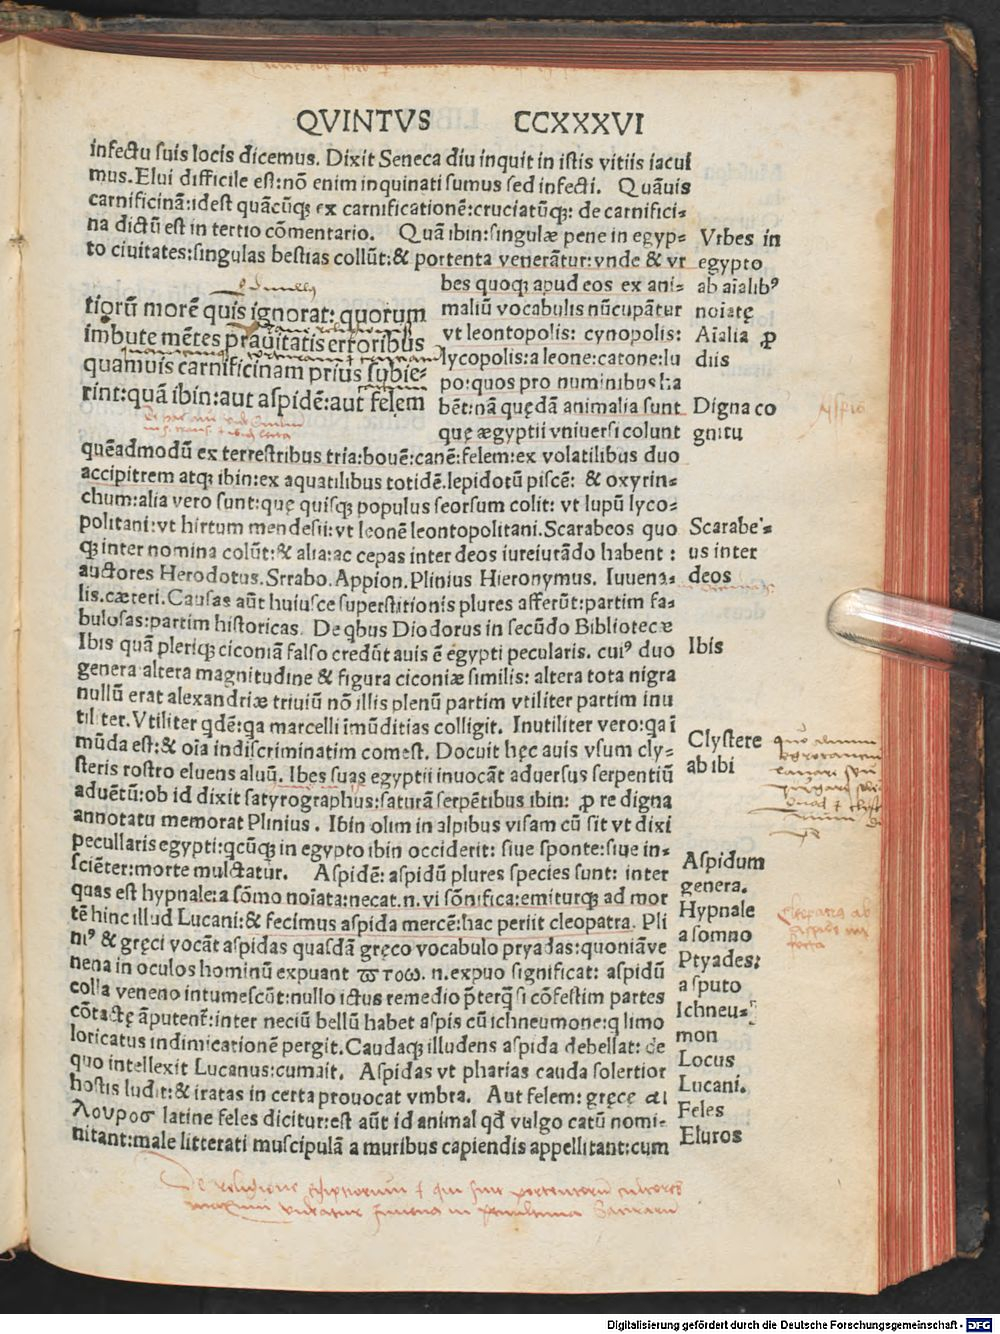 QVINTVS CCXXXVI
infectu suis locis dicemus. Dixit Seneca diu inquit in istis vitiis iacui
mus. Elui difficile est: nō enim inquinati sumus sed infecti. Quāuis
carnificinā: idest quācūq; ex carnificationē: cruciatūq;: de carnifici⸗
na dictū est in tertio cōmentario. Quā ibin: singulæ pene in egyp⸗
to ciuitates: singulas bestias collūt: & portenta venerātur: vnde & vr
bes quoq; apud eos ex ani⸗
maliū vocabulis nūcupātur
vt leontopolis: cynopolis:
lycopolis: a leone: catone: lu
po: quos pro numinibus ha
bēt: nā quędā animalia sunt
quę ægyptii vniuersi colunt
tiorū morē quis ignorat: quorum
imbute mētes prauitatis erroribus
quamuis carnificinam prius subie⸗
rint: quā ibin: aut aspidē: aut felem
quēadmodū ex terrestribus tria: bouē: canē: felem: ex volatilibus duo
accipitrem atq; ibin: ex aquatilibus totidē. lepidotū piscē: & oxyrin⸗
chum: alia vero sunt: quę quisq; populus seorsum colit: vt lupū lyco⸗
politani: vt hirtum mendesii: vt leonē leontopolitani. Scarabeos quo
q; inter nomina colūt: & alia: ac cepas inter deos iureiurādo habent :
auctores Herodotus. Srrabo. Appion. Plinius Hieronymus. Iuuena⸗
lis. cæteri. Causas aūt huiusce superstitionis plures afferūt: partim fa⸗
bulosas: partim historicas. De qbus Diodorus in secūdo Bibliotecæ
Ibis quā pleriq; ciconiā falso credūt auis ē egypti pecularis. cuiꝰ duo
genera altera magnitudine & figura ciconiæ similis: altera tota nigra
nullū erat alexandriæ triuiū nō illis plenū partim vtiliter partim inu
tiliter. Vtiliter qdē: qa marcelli īmūditias colligit. Inutiliter vero: qa ī
mūda est: & oīa indiscriminatim comest. Docuit hęc auis vsum cly⸗
steris rostro eluens aluū. Ibes suas egyptii inuocāt aduersus serpentiū
aduētū: ob id dixit satyrographus: saturā serpētibus ibin: ꝓ re digna
annotatu memorat Plinius. Ibin olim in alpibus visam cū sit vt dixi
pecullaris egypti: qcūq; in egypto ibin occiderit: siue sponte: siue in⸗
sciēter: morte mulctatūr. Aspidē: aspidū plures species sunt: inter
quas est hypnale: a sōmo noīata: necat. n. vi sōnifica: emiturq; ad mor
tē hinc illud Lucani: & fecimus aspida mercē: hac periit cleopatra. Pli
niꝰ & gręci vocāt aspidas quasdā gręco vocabulo pryadas: quoniā ve
nena in oculos hominū expuant ϖτοω. n. expuo significat: aspidū
colla veneno intumescūt: nullo ictus remedio p̄terq̄ si cōfestim partes
cōtactę āputent᷑: inter neciū bellū habet aspis cū ichneumone: q limo
loricatus indimicationē pergit. Caudaq; illudens aspida debellat: de
quo intellexit Lucanus: cumait. Aspidas vt pharias cauda solertior
hostis ludit: & iratas in certa prouocat vmbra. Aut felem: gręcę αι
λουροσ latine feles dicitur: est aūt id animal qd̄ vulgo catū nomi⸗
nitant: male litterati muscipulā a muribus capiendis appellitant: cum
Vrbes in
egypto
ab aīalibꝰ
noīatę
Aīalia ꝓ
diis
Digna co
gnitu
Scarabe⸗
us inter
deos
Ibis
Clystere
ab ibi
Aspidum
genera.
Hypnale
a somno
Ptyades:
a sputo
Ichneu⸗
mon
Locus
Lucani.
Feles
Eluros
Aspis
Cleopatra ab
Digitalisierung gefördert durch die Deutsche Forschungsgemeinschaft - DFG